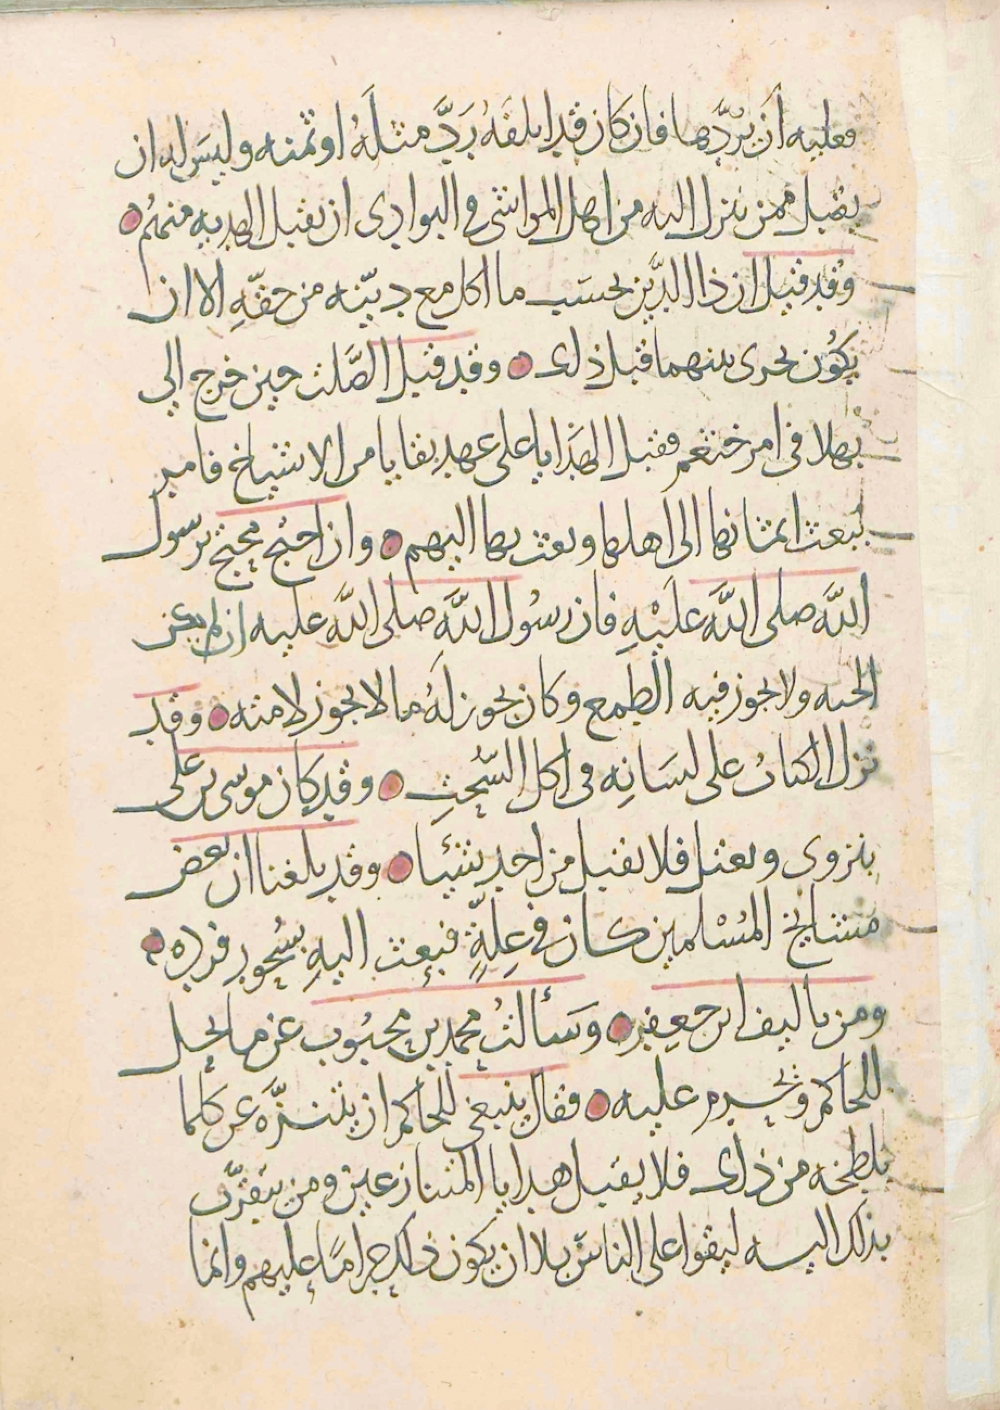 فعليه أن يردّها فان كان قد ابلغه ردّ مثله او ثمنه وليس له ان
يقبل ممن ينزل اليه من اهل المواشي في البوادي ان يقبل الهديه منهم
وقد قيل ان ذا الدَّين يحسب ما اكل مع ديّنه من حقّهِ الا ان
يكون يجرى بينهما قبل ذلك وقد قبل الصَّلت حين خرج الي
بهلا في امر خثعم فقبل الهَدَايا على عهد بقايا من الاشياخ فامر
ليبعث اثمانها الى اهلها وبعث بها اليهم وان احتج محتج برسول
اللَّه صلى اللَّه عَليْهِ فان رسُول اللَّه صلى اللَّه عليه ان لم يكن
الحبه ولا يجوز فيه الطمع وكان يجوز لَهُ ما لا يجوز لامته وقد
نزل الكتابُ على لسَانِه في اكل السُّحتِ وقد كان موسى بن على
بنزوى ويعتل فلا يقبل من احد شيئا وقد بلغنا ان بعض
مشايخ المسْلمين كان في عِلةٍ فبعث اليهِ بسُحور فرده
ومن تاليف ابن جعفر وسَألتُ محمد بن محبُوب عن ما يحل
للحاكم ويحرم عليه فقال ينبغي للحاكم ان يتنزَّه عن كلما
يلطخه من ذلك فلا يقبل هدايا المتنازعين ومن يتقرّب
بذلك اليه ليقوا على الناس بلا ان يكون ذلك حرامًا عليهم وانما